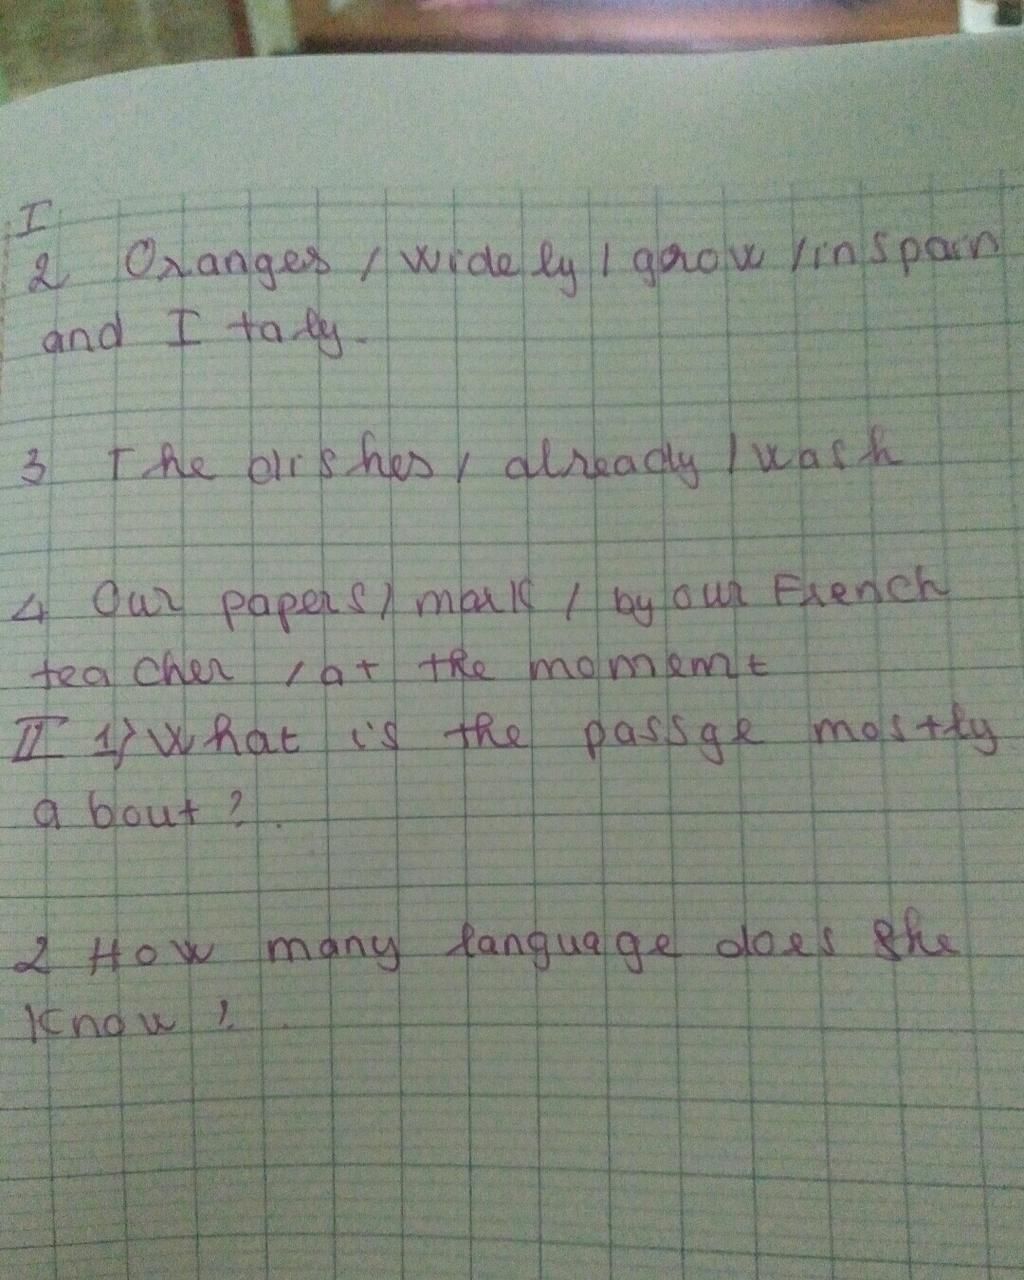 I
2 Oranges / widely / grow / in spain
and Italy.
3 The dishes / already / wash
4 Our papers / mark / by our French
teacher / at the moment
II 1) What is the passge mostly
about ?.
2 How many language does she
know ?